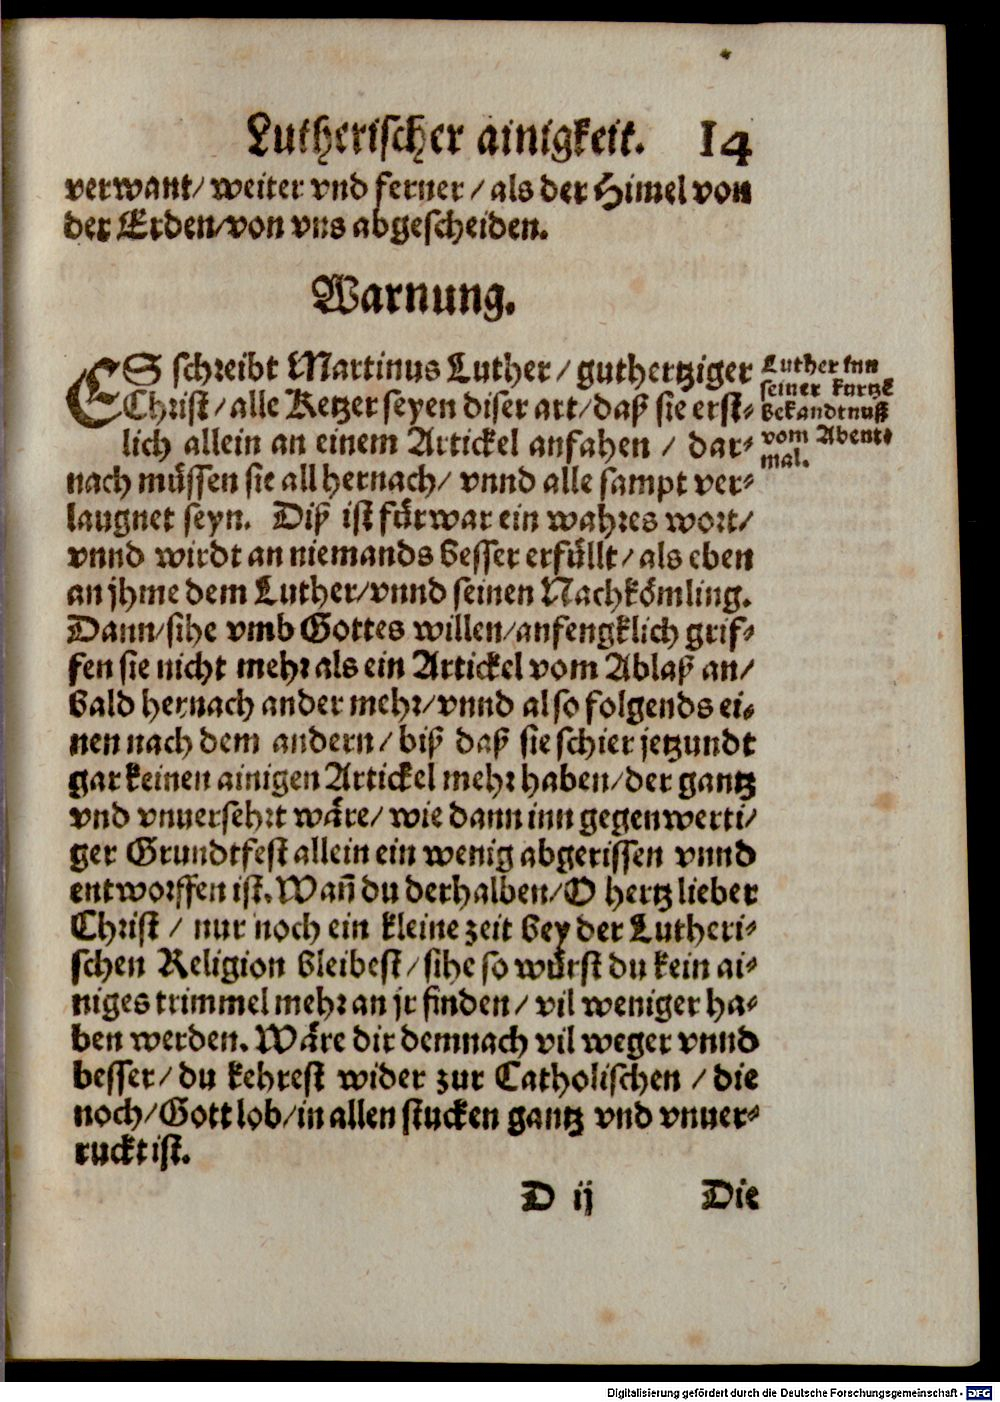 Lutherischer ainigkeit. 14
verwant/ weiter vnd ferner / als der Himel von
der Erden/von vns abgescheiden.
Warnung.
ES schreibt Martinus Luther / guthertziger
Christ / alle Ketzer seyen diser art/ daß sie erst⸗
lich allein an einem Artickel anfahen / dar⸗
nach müssen sie all hernach/ vnnd alle sampt ver⸗
laugnet seyn. Diß ist fürwar ein wahres wort/
vnnd wirdt an niemands besser erfüllt/ als eben
an jhme dem Luther/vnnd seinen Nachkömling.
Dann/sihe vmb Gottes willen/anfengklich grif⸗
fen sie nicht mehr als ein Artickel vom Ablaß an/
bald hernach ander mehr/vnnd also folgends ei⸗
nen nach dem andern/ biß daß sie schier jetzundt
gar keinen ainigen Artickel mehr haben/der gantz
vnd vnuersehrt wäre/ wie dann inn gegenwerti/
ger Grundtfest allein ein wenig abgerissen vnnd
entworffen ist. Wañ du derhalben/O hertz lieber
Christ / nur noch ein kleine zeit bey der Lutheri⸗
schen Religion bleibest/ sihe so würst du kein ai⸗
niges trimmel mehr an jr finden/ vil weniger ha⸗
ben werden. Wäre dir demnach vil weger vnnd
besser/ du kehrest wider zur Catholischen / die
noch/Gott lob/in allen stucken gantz vnd vnuer⸗
ruckt ist.
Luther inn
seiner kurtzē
bekandtnuß
vom Abent⸗
mal.
D ij Die
Digitalisierung gefördert durch die Deutsche Forschungsgemeinschaft - DFG